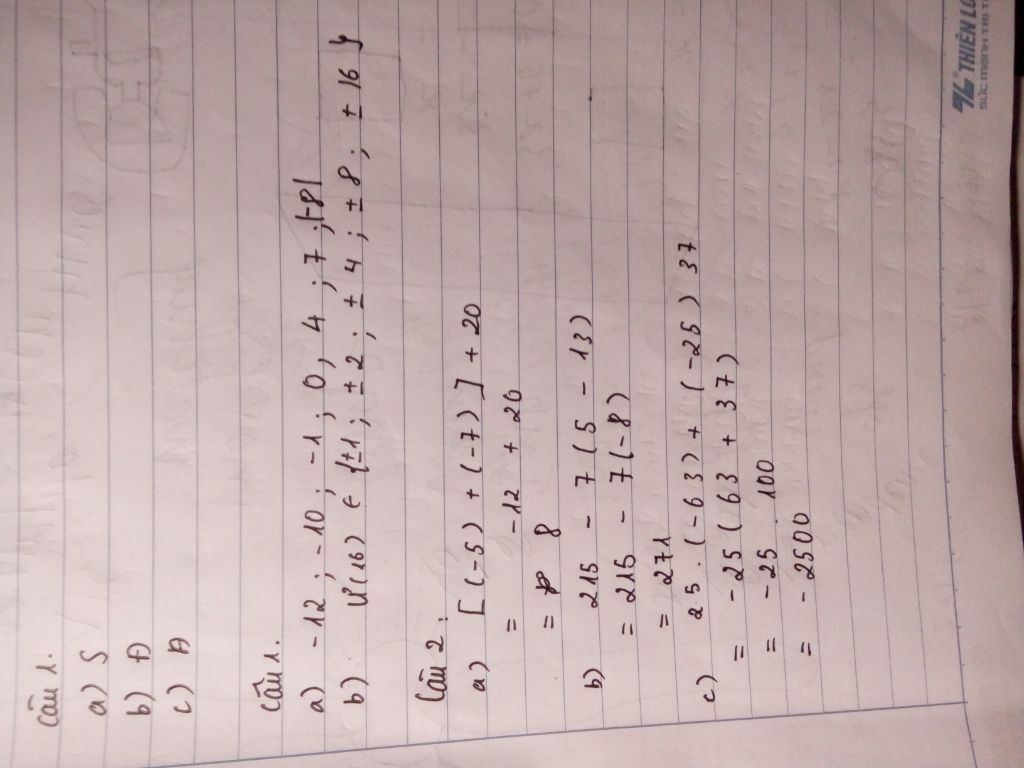 Câu 1.
a) S
b) Đ
c) Đ
Câu 1.
a) -12 ; -10 ; -1 ; 0 ; 4 ; 7 ; |+8|
b) Ư(16) ∈ {±1 ; ±2 ; ±4 ; ±8 ; ±16}
Câu 2 :
a) [(-5) + (-7)] + 20
= -12 + 20
= 8
b) 215 - 7 (5 - 13)
= 215 - 7(-8)
= 271
c) 25 . (-63) + (-25) 37
= -25 (63 + 37)
= -25 . 100
= -2500
THIÊN LO
SỨC MẠNH TRI T